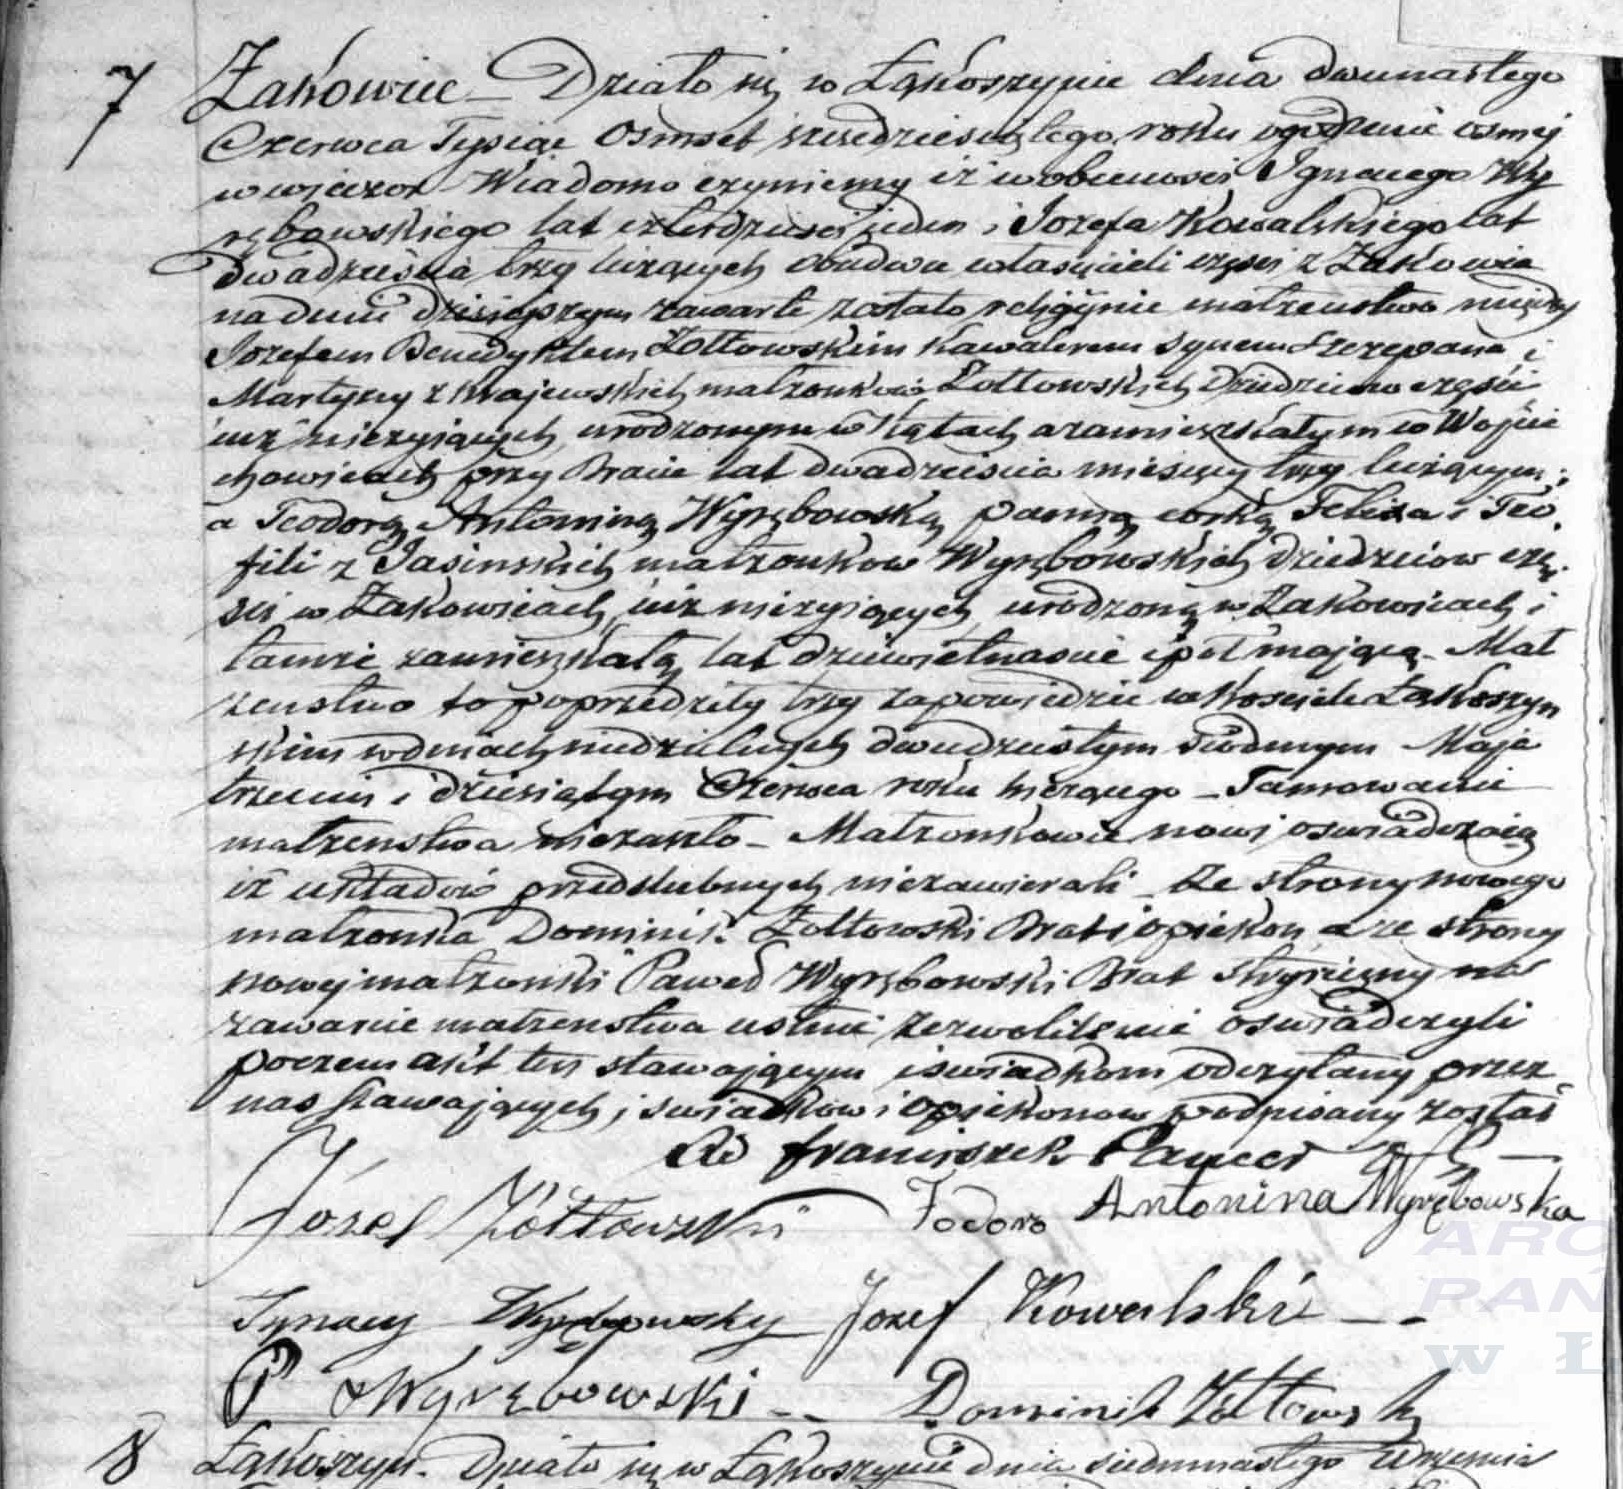 7 Żakowiec – Działo się w Łąkoszynie dnia dwunastego
Czerwca Tysiąc Osmset szesdziesiątego roku ogodzinie osmej
w wieczor Wiadomo czyniemy iż wobecnosci Ignacego Wy
rębowskiego lat czterdziesci jeden i Jozefa Kowalskiego lat
dwadziescia trzy liczących obudwu własciscieli częsci z Żakowic
na dniu dzisiejszym zawarte zostało religijnie malzenstwo między
Jozefem Benedyktem Żołtowskim Kawalerem synem Szczepana i
Martyny z Krajewskich malzonkow Żołtowskich Dziedzicow częsci
już nieżyjących, urodzonym w Kątach a zamieszkałym w Wojcie
chowicach przy Bracie lat dwadziescia miesięcy trzy liczącym;
a Teodorą Antoniną Wyrębowską panną corką Felixa i Teo
fili z Jasinskich małzonkow Wyrębowskich dziedzicow czę
sci w Żakowicach już nieżyjących, urodzoną w Żakowicach i
tamże zamieszkałą lat dziewietnascie i poł mającą – Mał
zenstwo to poprzedziły trzy zapowiedzie w Kosciele Łąkoszyn
skim w dniach niedzielnych dwudziestym siodmym Maja
trzecim i dziesiątym Czerwca roku bieżącego – Tamowanie
małzenstwa niezaszło – Małzonkowie nowi oswiadczają
iż układow przedslubnych niezawierali Ze strony nowego
małzonka Dominik Żołtowski Brat i opiekon a ze strony
nowej małzonki Paweł Wyrębowski Brat stryieczny na
zawarcie małzenstwa ustnie zezwolenie oswiadczyli
poczem akt ten stawającym i swiadkom odczytany przez
nas stawających, i swiadkow i opiekonow podpisany został
Franciszek
Józef Żółtowski Todora Antonina Wyrębowska
Ignacy Wyrębowsky Jozef Kowalski – –
P Wyrębowski – – Dominik Żołtowsky
8 Łąkoszyn – Działo się w Łąkoszynie dnia siedmnastego Wrzesnia
ARC
PAN
W Ł